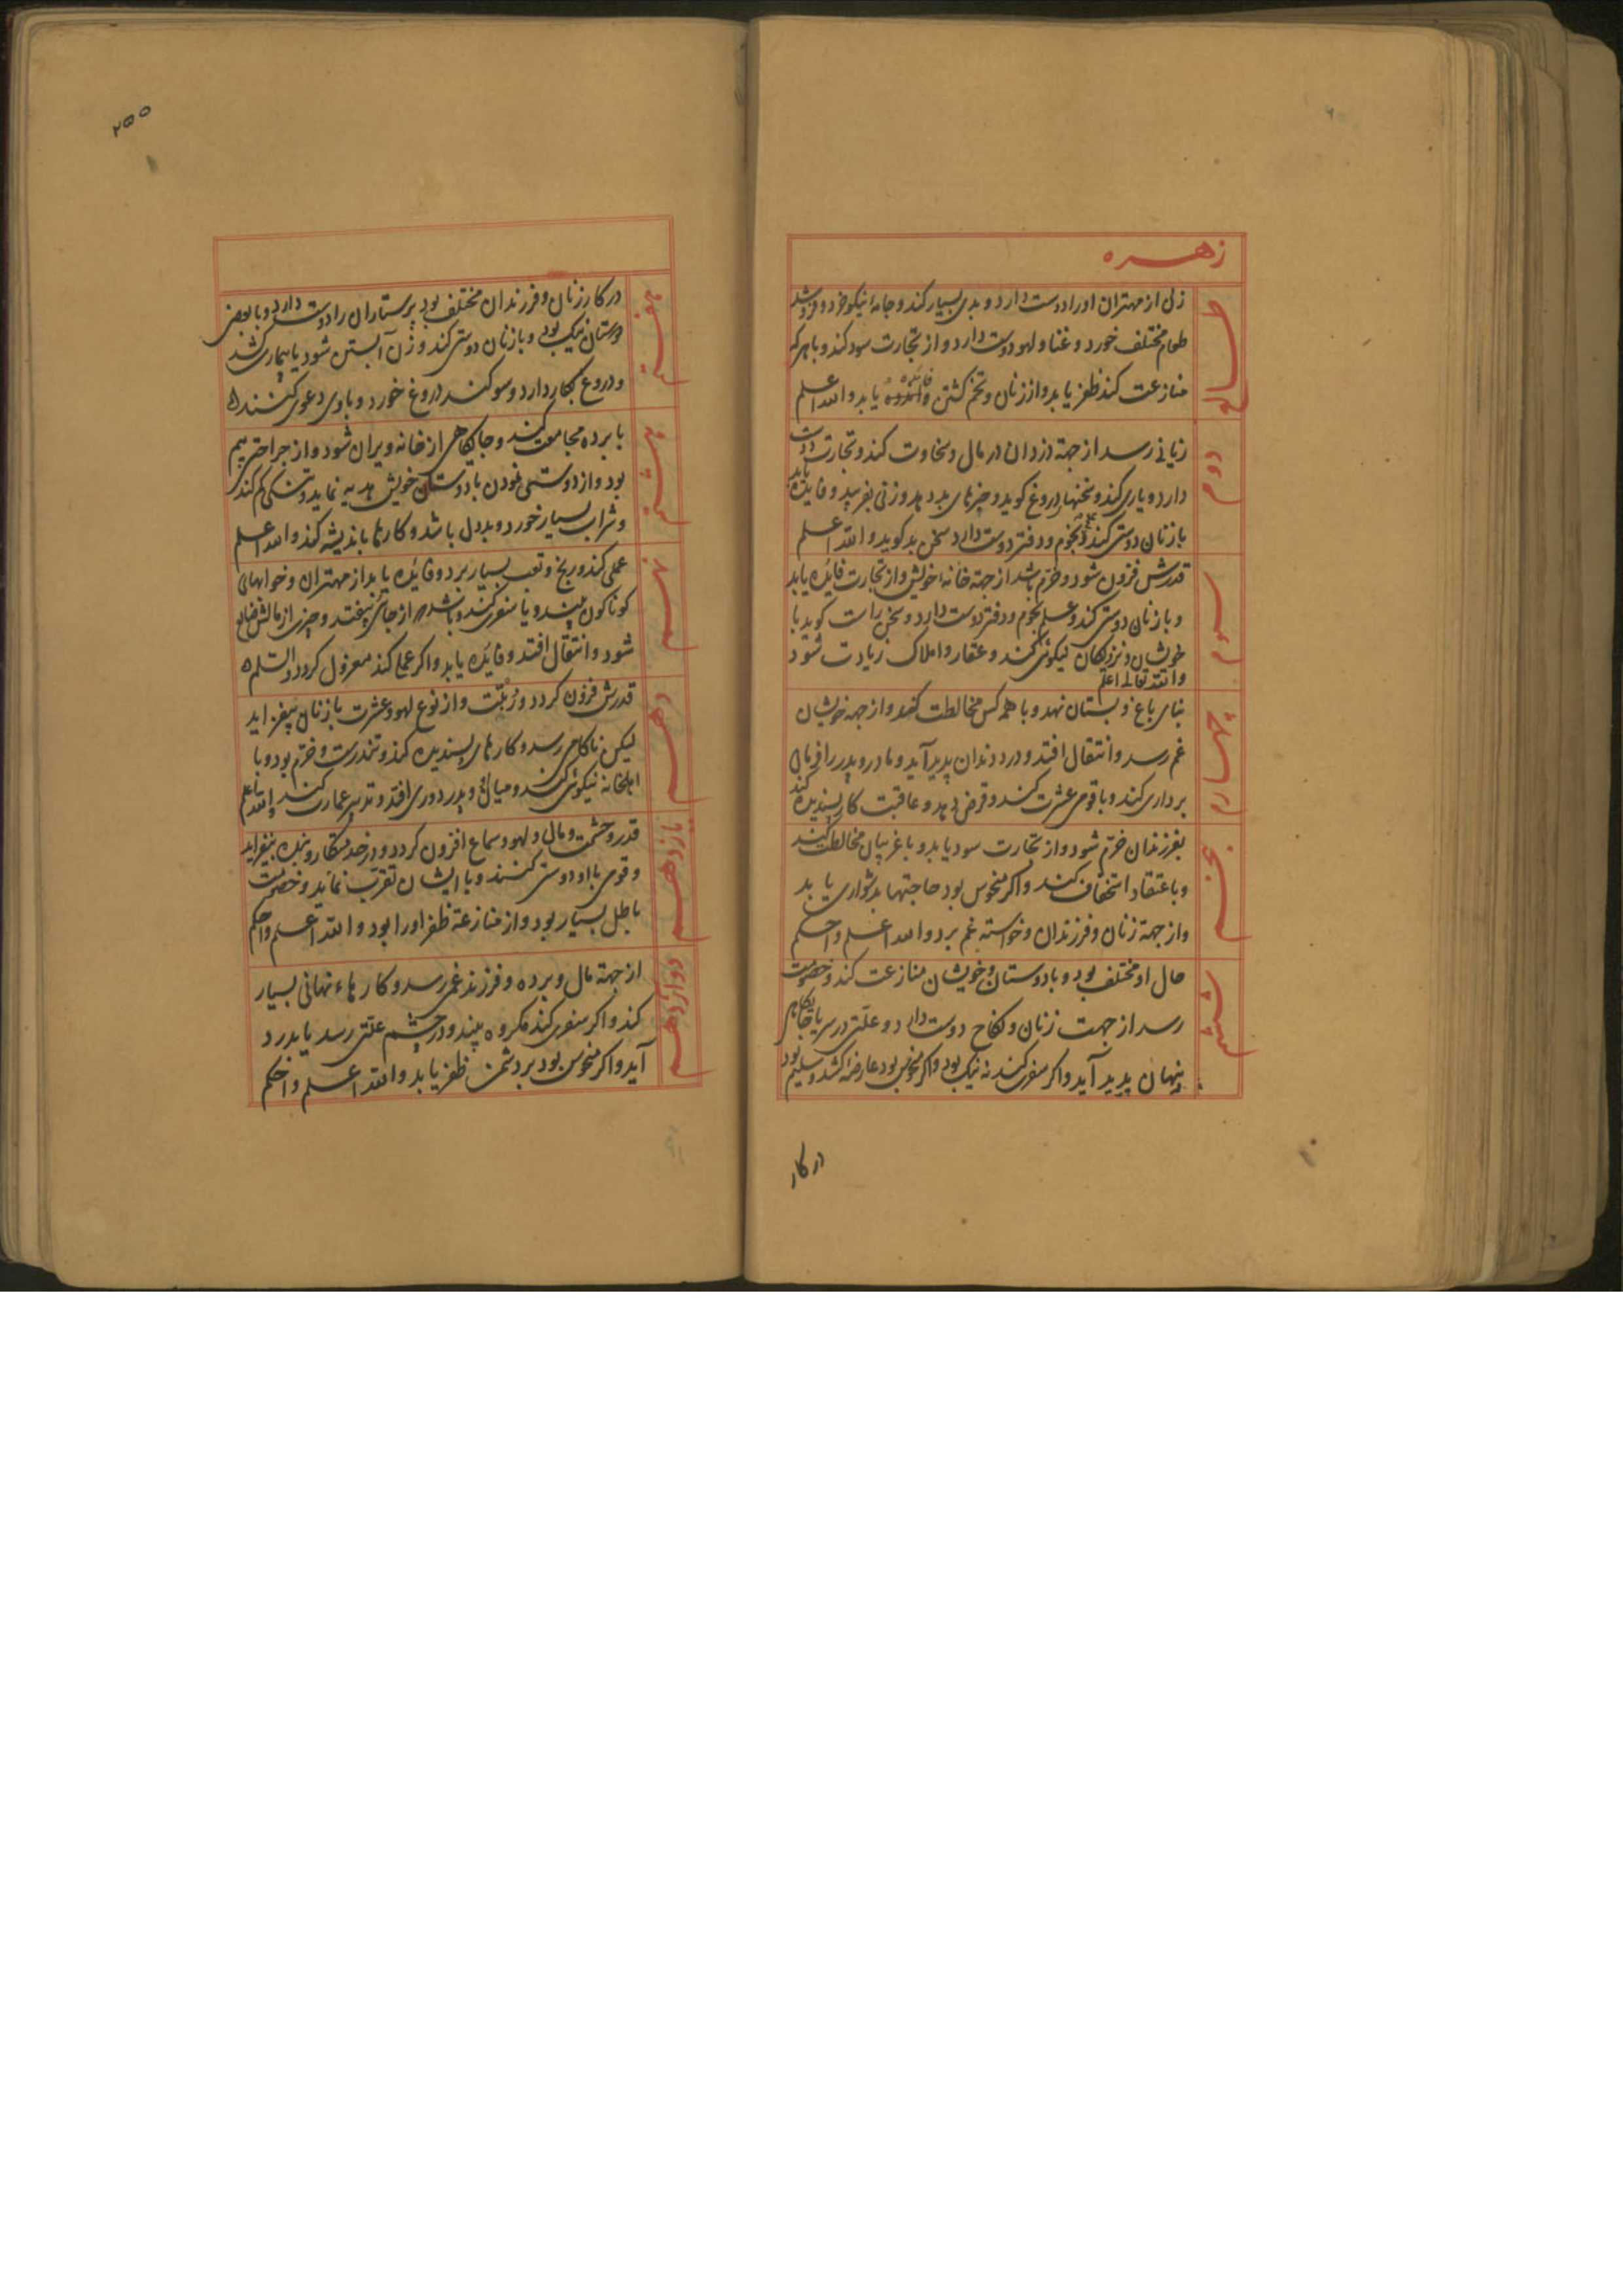 زهره
طالع
زنی از مهتران او را دوست دارد و بدی بسیار کند و جامهٔ نیکو خرد و فروشد
طعام مختلف خورد و غنا و لهو دوست دارد و از تجارت سود کند و با هر که
منازعت کند ظفر یابد و از زنان و تخم کشتن فائده یابد و الله اعلم
دوم
زیانی رسد از جهة دزدان در مال و سخاوت کند و تجارت دوست
دارد و یاری کند و سخنها دروغ کوید و چیزهای بد دهد و زنی بفریبد و فایده یابد
با زنان دوستی کند و نجوم و دفتر دوست دارد سخن بد کوید و الله اعلم
سوم
قدرش فزون شود و خرّم باشد از جهة خانهٔ خویش و از تجارت فائده یابد
و با زنان دوستی کند و علم نجوم و دفتر دوست دارد و سخن راست کوید با
خویشان و نزدیکان نیکوئی کند و عقار و املاک زیادت شود
والله تعالی اعلم
چهارم
بنای باغ و بستان نهد و با همه کس مخالطت کند و از جهة خویشان
غم رسد و انتقال افتد و درد دندان پدید آید و مادر و پدر را فرمان
برداری کند و با قومی عشرت کند و قرض دهد و عاقبت کار پسندیده کند
پنجم
بفرزندان خرّم شود و از تجارت سود یابد و با غریبان مخالطت کند
و باعتقاد استخفاف کند و اکر منحوس بود حاجتها بدشواری یابد
و از جهة زنان و فرزندان و خواسته غم برد و الله اعلم و احکم
ششم
حال او مختلف بود و با دوستان و خویشان منازعت کند و خصومت
رسد از جهت زنان و نکاح دوست دارد و علّتی در سر یا جایکاهی
پنهان پدید آید و اکر سفری کند نه نیک بود و اکر منحوس بود عارضه کشد و سلیم بود
در کار
۲۵۵
هفتم
در کار زنان و فرزندان مختلف بود پرستاران را دوست دارد و با بعضی
دوستان نیک بود و با زنان دوستی کند و زن آبستن شود یا بیماری کشد
و دروغ بکار دارد و سوکند دروغ خورد و با وی دعوی کنند
هشتم
با برده مجامعت کند و جایکاهی از خانه ویران شود و از جراحتی بیم
بود و از دوستی نمودن با دوستان خویش هدیه نماید و کم کند
و شراب بسیار خورد و بددل باشد و کارها باندیشه کند و الله اعلم
نهم
عملی کند و رنج و تعب بسیار برد و فائده یابد از مهتران و خوابهای
کوناکون بیند و یا سفری کند و باشد که از جای بیفتد و چیزی از مالش ضایع
شود و انتقال افتد و فائده یابد و اکر عملی کند معزول کردد والسلم
دهم
قدرش فزون کردد و رتبت و از نوع لهو و عشرت با زنان بیفزاید
لیکن ناکامی رسد و کارهای پسندیده کند و تندرست و خرّم بود و با
اهل خانه نیکوئی کند و میان او و پدر دوری افتد و تدبیر عمارت کند والله اعلم
یازدهم
قدر و حشمت و مال و لهو و سماع افزون کردد و در خدمتکار و بنده بیفزاید
و قومی با او دوستی کنند و با ایشان تقرّب نماید و خصومت
باطل بسیار بود و از منازعة ظفر او را بود و الله اعلم و احکم
دوازدهم
از جهة مال و برده و فرزند غمی رسد و کارهاء نهانی بسیار
کند و اکر سفری کند مکروه بیند و در چشم علّتی رسد یا بدرد
آید و اکر منحوس بود بر دشمن ظفر یابد و الله اعلم و احکم